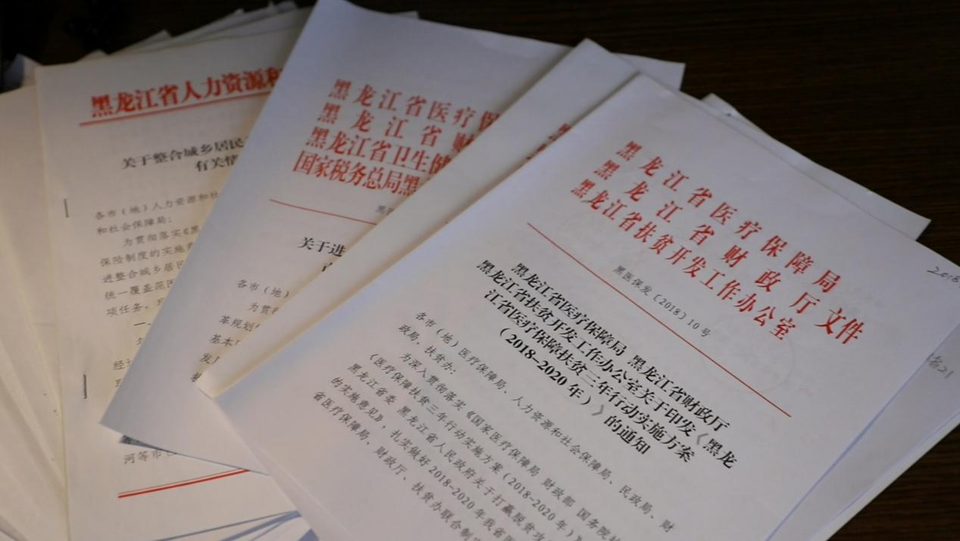 黑龙江省人力资源和
关于整合城乡居民
有关情
各市（地）人力资源和社
和社会保障局：
为贯彻落实《黑
保险制度的实施
进整合城乡居民
统一覆盖范围
项任务、
一、
河等市
黑龙江省医疗保
黑龙江省财
黑龙江省卫生健
国家税务总局黑
黑医
关于进
各市（地）
为贯
革规划
基本
发
黑
黑龙江省医疗保障局
黑龙江省财政厅文件
黑龙江省扶贫开发工作办公室
黑医保发〔2018〕10号
黑龙江省医疗保障局 黑龙江省财政厅
黑龙江省扶贫开发工作办公室关于印发《黑龙
江省医疗保障扶贫三年行动实施方案
（2018-2020年）》的通知
各市（地）医疗保障局、人力资源和社会保障局、民政局、财
政局、扶贫办：
为深入贯彻落实《国家医疗保障局 财政部 国务院扶
《医疗保障扶贫三年行动实施方案（2018-2020年）
黑龙江省委 黑龙江省人民政府关于打赢脱贫
的实施意见》，扎实做好2018-2020年我省医
省医疗保障局、财政厅、扶贫办联合制